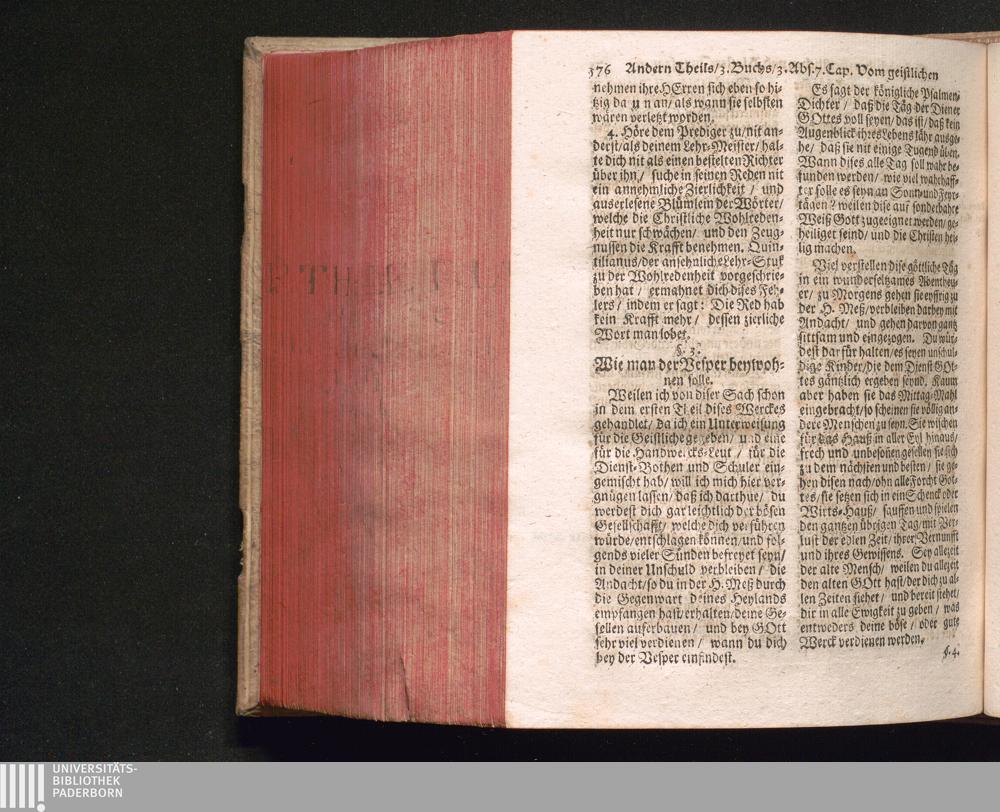 376 Andern Theils/3. Buchs/3. Abs. 7. Cap. Vom geistlichen
nehmen ihre HErren sich eben so hi-
tzig da u n an/ als wann sie selbsten
wären verletzt worden.
4. Höre dem Prediger zu/ nit an-
derst/ als deinem Lehr-Meister/ hal-
te dich nit als einen bestelten Richter
über ihn/ suche in seinen Reden nit
ein annehmliche Zierlichkeit / und
auserlesene Blümlein der Wörter/
welche die Christliche Wohlreden-
heit nur schwächen/ und den Zeug-
nussen die Krafft benehmen. Quin-
tilianus/ der ansehnliche Lehr-Stuk
zu der Wohlredenheit vorgeschrie-
ben hat / ermahnet dich dises Feh-
lers / indem er sagt : Die Red hab
kein Krafft mehr / dessen zierliche
Wort man lobet.
§. 3.
Wie man der Vesper beywoh-
nen solle.
Weilen ich von diser Sach schon
in dem ersten Theil dises Werckes
gehandlet/ da ich ein Unterweisung
für die Geistliche gegeben/ und eine
für die Handwercks-Leut / für die
Dienst-Bothen und Schuler ein-
gemischt hab/ will ich mich hier ver-
gnügen lassen/ daß ich darthue/ du
werdest dich gar leichtlich der bösen
Gesellschafft/ welche dich verführen
würde/ entschlagen können/ und fol-
gends vieler Sünden befreyet seyn/
in deiner Unschuld verbleiben / die
Andacht/ so du in der H. Meß durch
die Gegenwart deines Heylands
empfangen hast/ erhalten/ deine Ge-
sellen auferbauen / und bey GOtt
sehr viel verdienen / wann du dich
bey der Vesper einfindest.
Es sagt der königliche Psalmen-
Dichter / daß die Täg der Diener
GOttes voll seyen/ das ist/ daß kein
Augenblick ihres Lebens lähr ausge-
he/ daß sie nit einige Tugend üben.
Wann dises alle Tag soll wahr be-
funden werden/ wie viel wahrhaff-
ter solle es seyn an Sonn- und Feyr-
tägen? weilen dise auf sonderbahre
Weiß Gott zugeeignet werden/ ge-
heiliget seind/ und die Christen hei-
lig machen.
Viel verstellen dise göttliche Täg
in ein wunderseltzames Abentheu-
er/ zu Morgens gehen sie eyffrig zu
der H. Meß/ verbleiben darbey mit
Andacht/ und gehen darvon gantz
sittsam und eingezogen. Du wür-
dest darfür halten/ es seyen unschul-
dige Kinder/ die dem Dienst GOt-
tes gäntzlich ergeben seynd. Kaum
aber haben sie das Mittag-Mahl
eingebracht/ so scheinen sie völlig an-
dere Menschen zu seyn. Sie wischen
für das Hauß in aller Eyl hinaus/
frech und unbesonnen gesellen sie sich
zu dem nächsten und besten/ sie ge-
hen disen nach/ ohn alle Forcht Got-
tes/ sie setzen sich in ein Schenck oder
Wirts-Hauß/ sauffen und spielen
den gantzen übrigen Tag/ mit Ver-
lust der edlen Zeit/ ihrer Vernunfft
und ihres Gewissens. Sey allezeit
der alte Mensch/ weilen du allezeit
den alten GOtt hast/ der dich zu al-
len Zeiten siehet/ und bereit stehet/
dir in alle Ewigkeit zu geben/ was
entweders deine böse/ oder gute
Werck verdienen werden.
§. 4.
UNIVERSITÄTS-
BIBLIOTHEK
PADERBORN